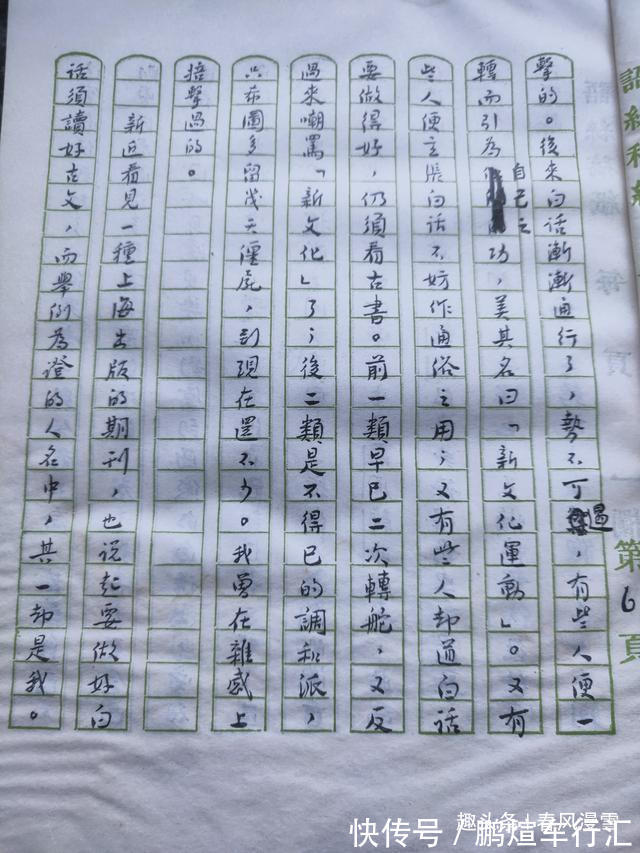 第6頁
擊的。後來白话漸漸通行了，勢不可遏，有些人便一
轉而引為自己之功，美其名曰「新文化運動」。又有
些人便主張白话不妨作通俗之用；又有些人却道白話
要做得好，仍須看古書。前一類早已二次轉舵，又反
過來嘲罵「新文化」了；後二類是不得已的調和派，
只希圖多留幾天僵屍，到現在還不少。我曾在雜感上
掊擊過的。
新近看見一種上海出版的期刊，也说起要做好白
话須讀好古文，而舉例為證的人名中，其一却是我。
趣头条 | 春风漫雪
快传号／鹏煊车行汇